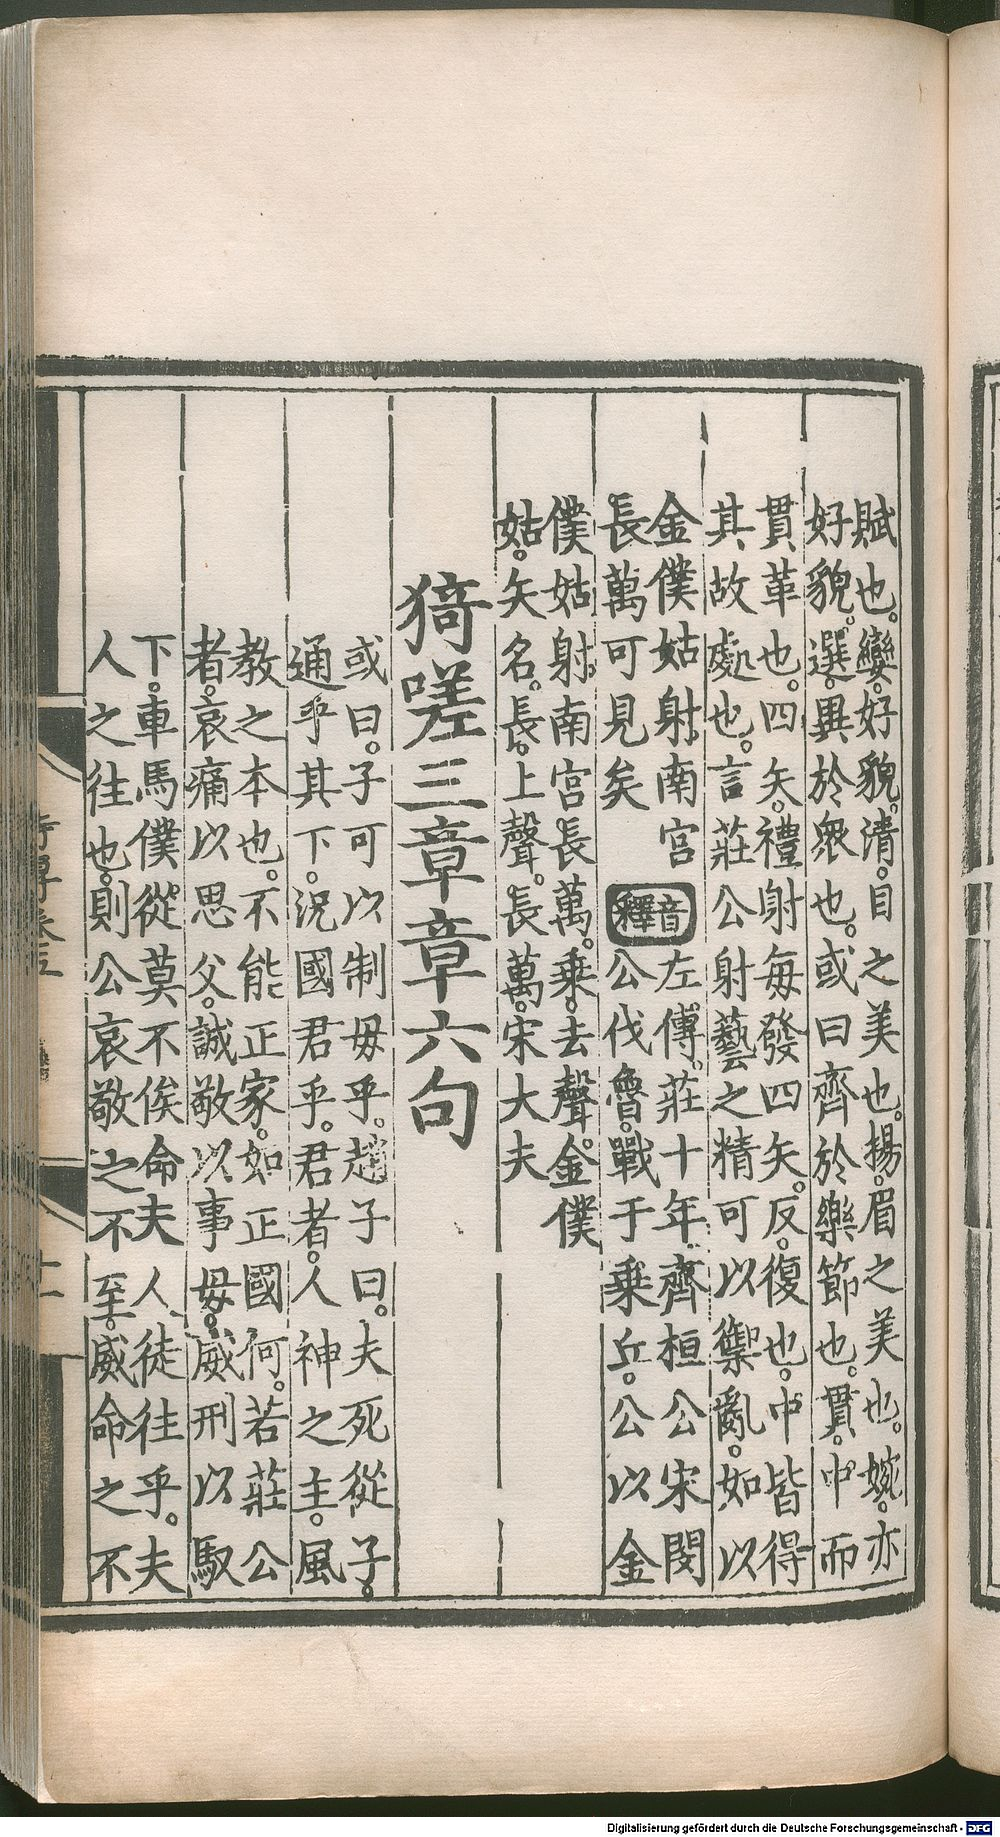 賦也。孌。好貌。清。目之美也。揚。眉之美也。婉。亦
好貌。選。異於衆也。或曰齊於樂節也。貫。中而
貫革也。四矢。禮射每發四矢。反。復也。中皆得
其故處也。言莊公射藝之精可以禦亂。如以
金僕姑射南宮
長萬可見矣
音釋
左傳。莊十年齊桓公宋閔
公伐魯。戰于乗丘。公以金
僕姑射南宮長萬。乗。去聲。金僕
姑。矢名。長。上聲。長萬。宋大夫
猗嗟三章章六句
或曰。子可以制母乎。趙子曰。夫死從子。
通乎其下。況國君乎。君者。人神之主。風
教之本也。不能正家。如正國何。若莊公
者。哀痛以思父。誠敬以事母。威刑以馭
下。車馬僕從莫不俟命夫人徒往乎。夫
人之往也。則公哀敬之不至。威命之不
詩傳卷五
Digitalisierung gefördert durch die Deutsche Forschungsgemeinschaft - DFG